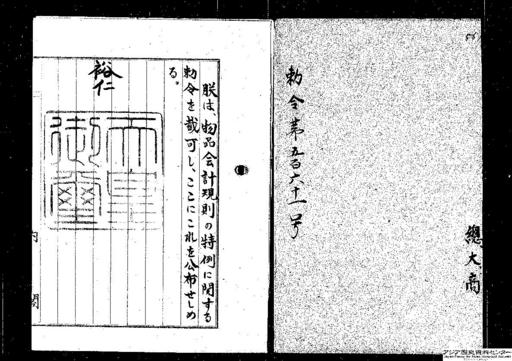 勅令第五百六十一号
總大商
朕は、物品会計規則の特例に関する
勅令を裁可し、ここにこれを公布せしめ
る。
裕仁
天皇
御璽
内閣
アジア歴史資料センター